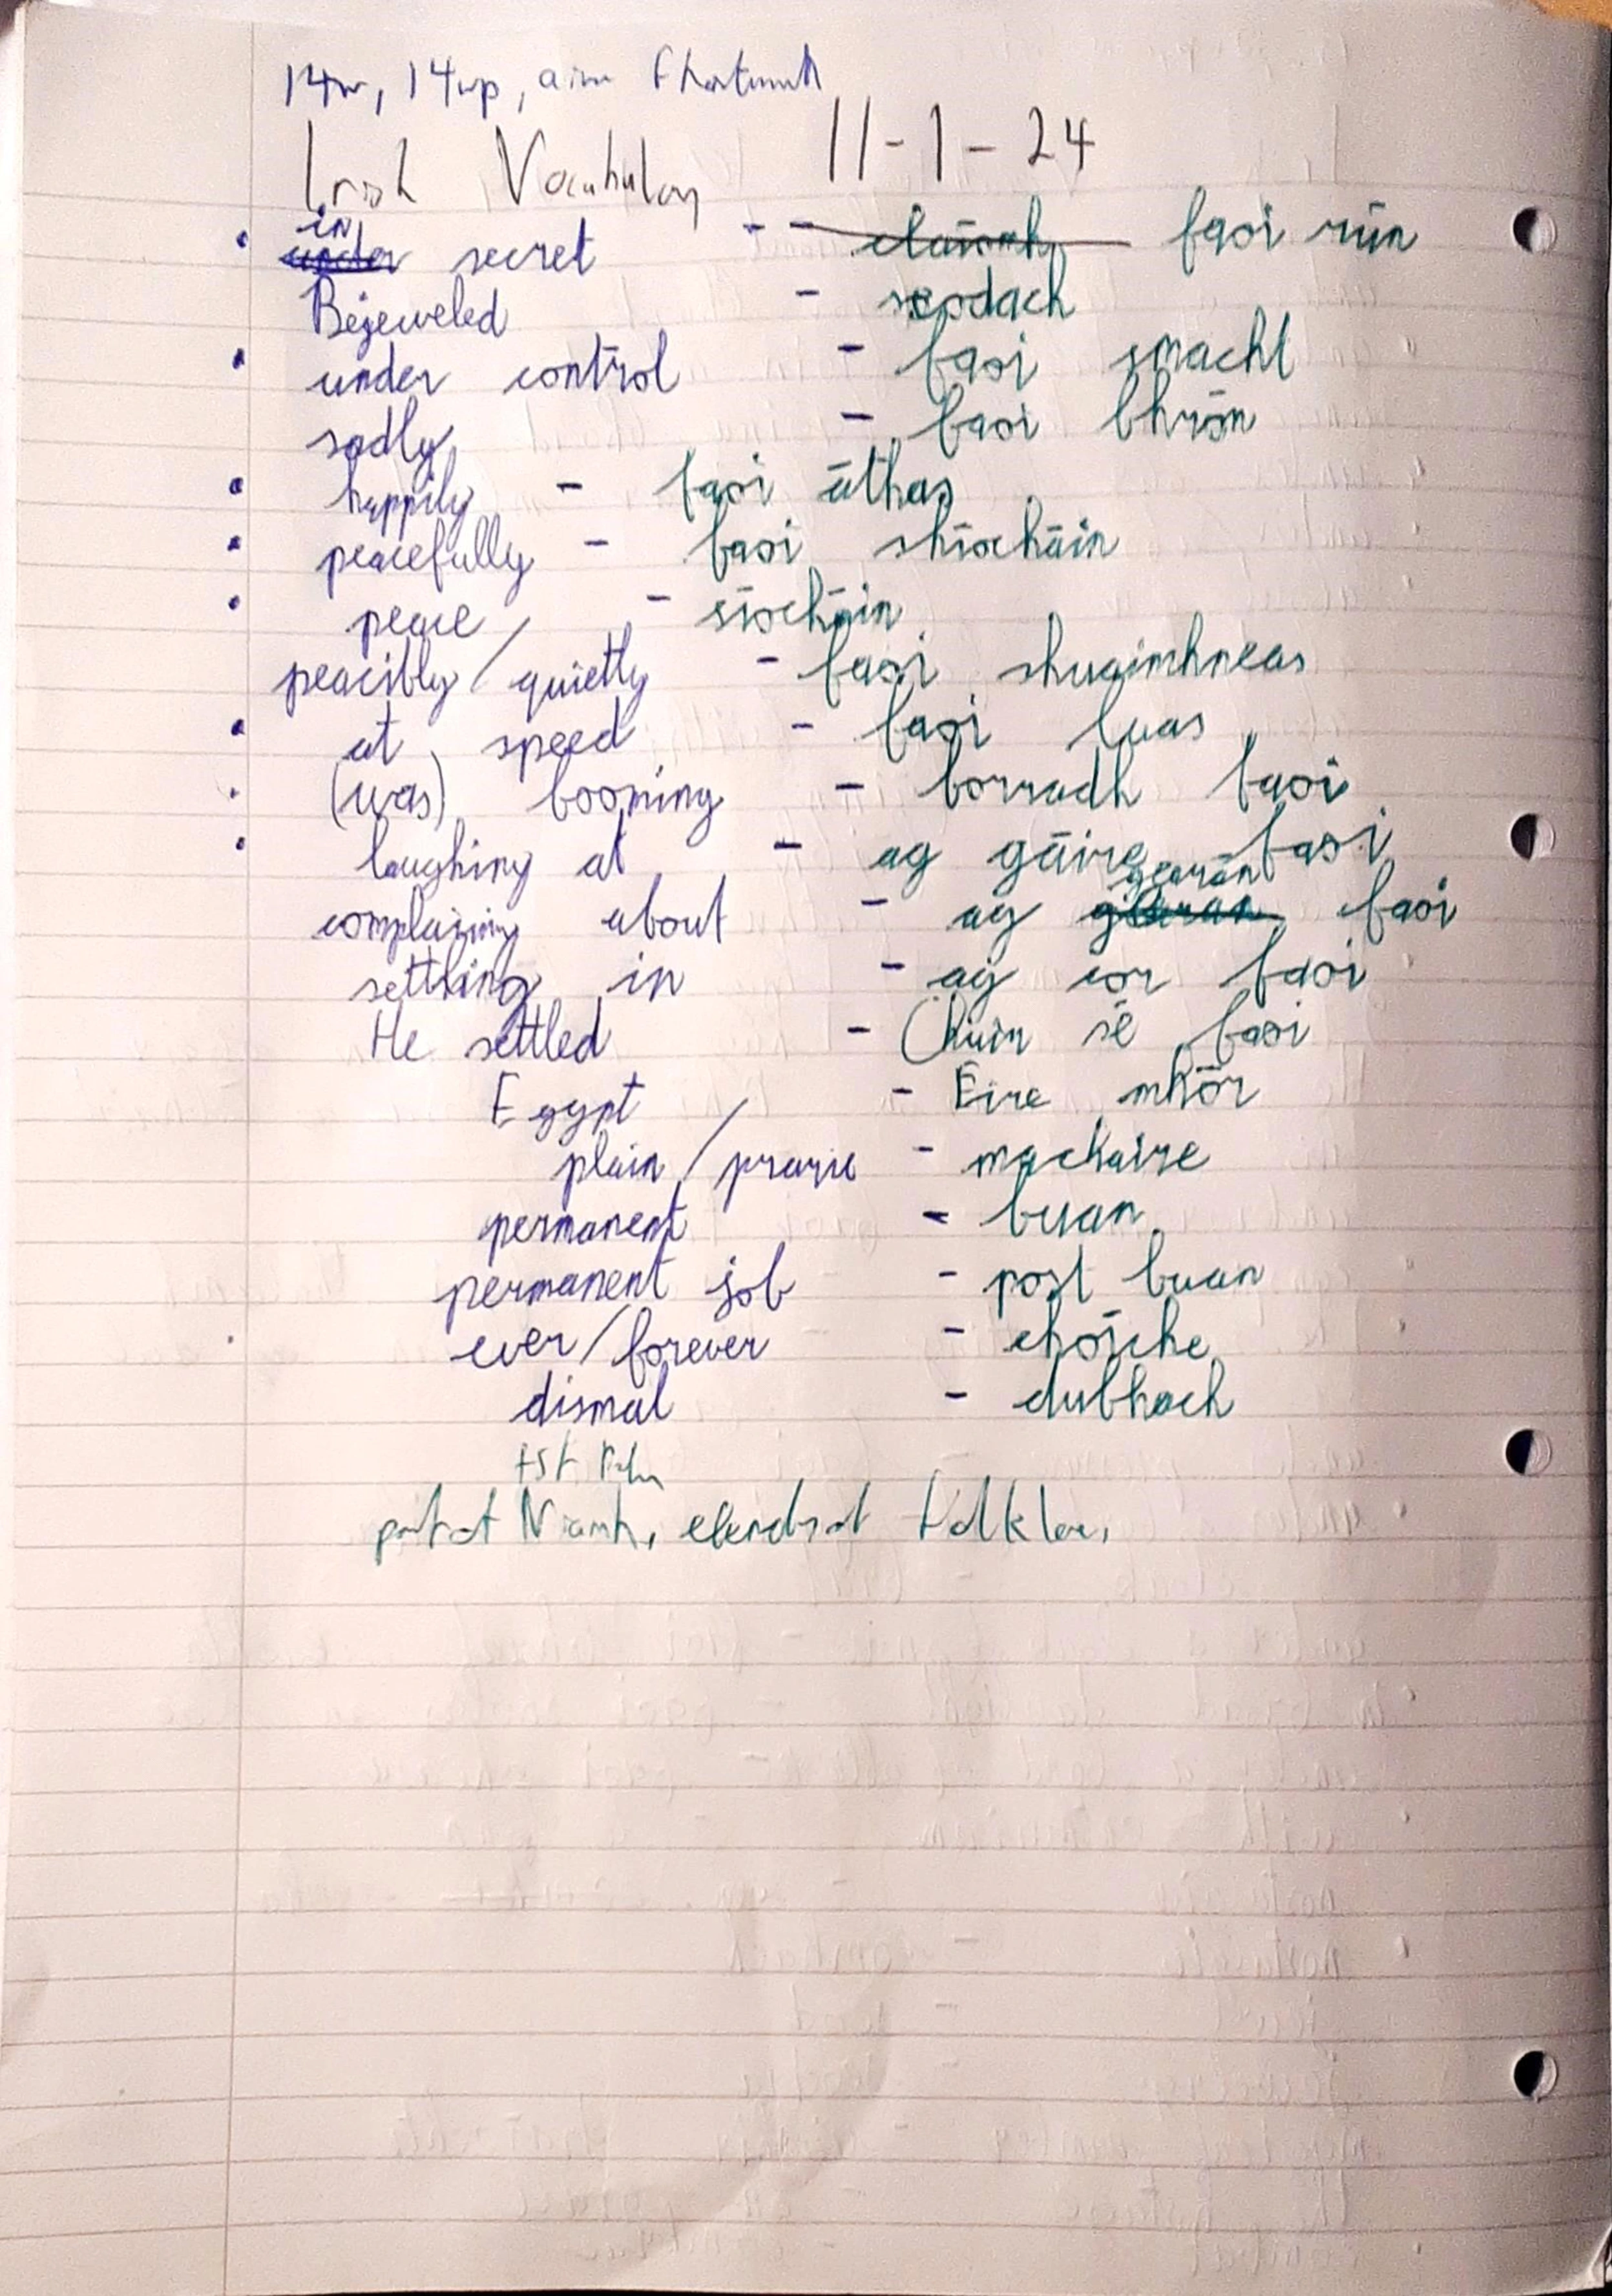 14w, 14wp, aim
Irish Vocabulary 11-1-24
in
• under secret -- faoi rún
Bejeweled - seodach
• under control - faoi smacht
sadly - faoi bhrón
• happily - faoi áthas
• peacefully - faoi shíocháin
• peace - síocháin
peacibly / quietly - faoi shuaimhneas
• at speed - faoi luas
• (was) booming - borradh faoi
• laughing at - ag gáire faoi
gearán
complaining about - ag faoi
settling in - ag cor faoi
He settled - Chuir sé faoi
Egypt - Éire mhór
plain / prarie - machaire
permanent - buan
permanent job - post buan
ever / forever - choíche
dismal - dubhach
Niamh,